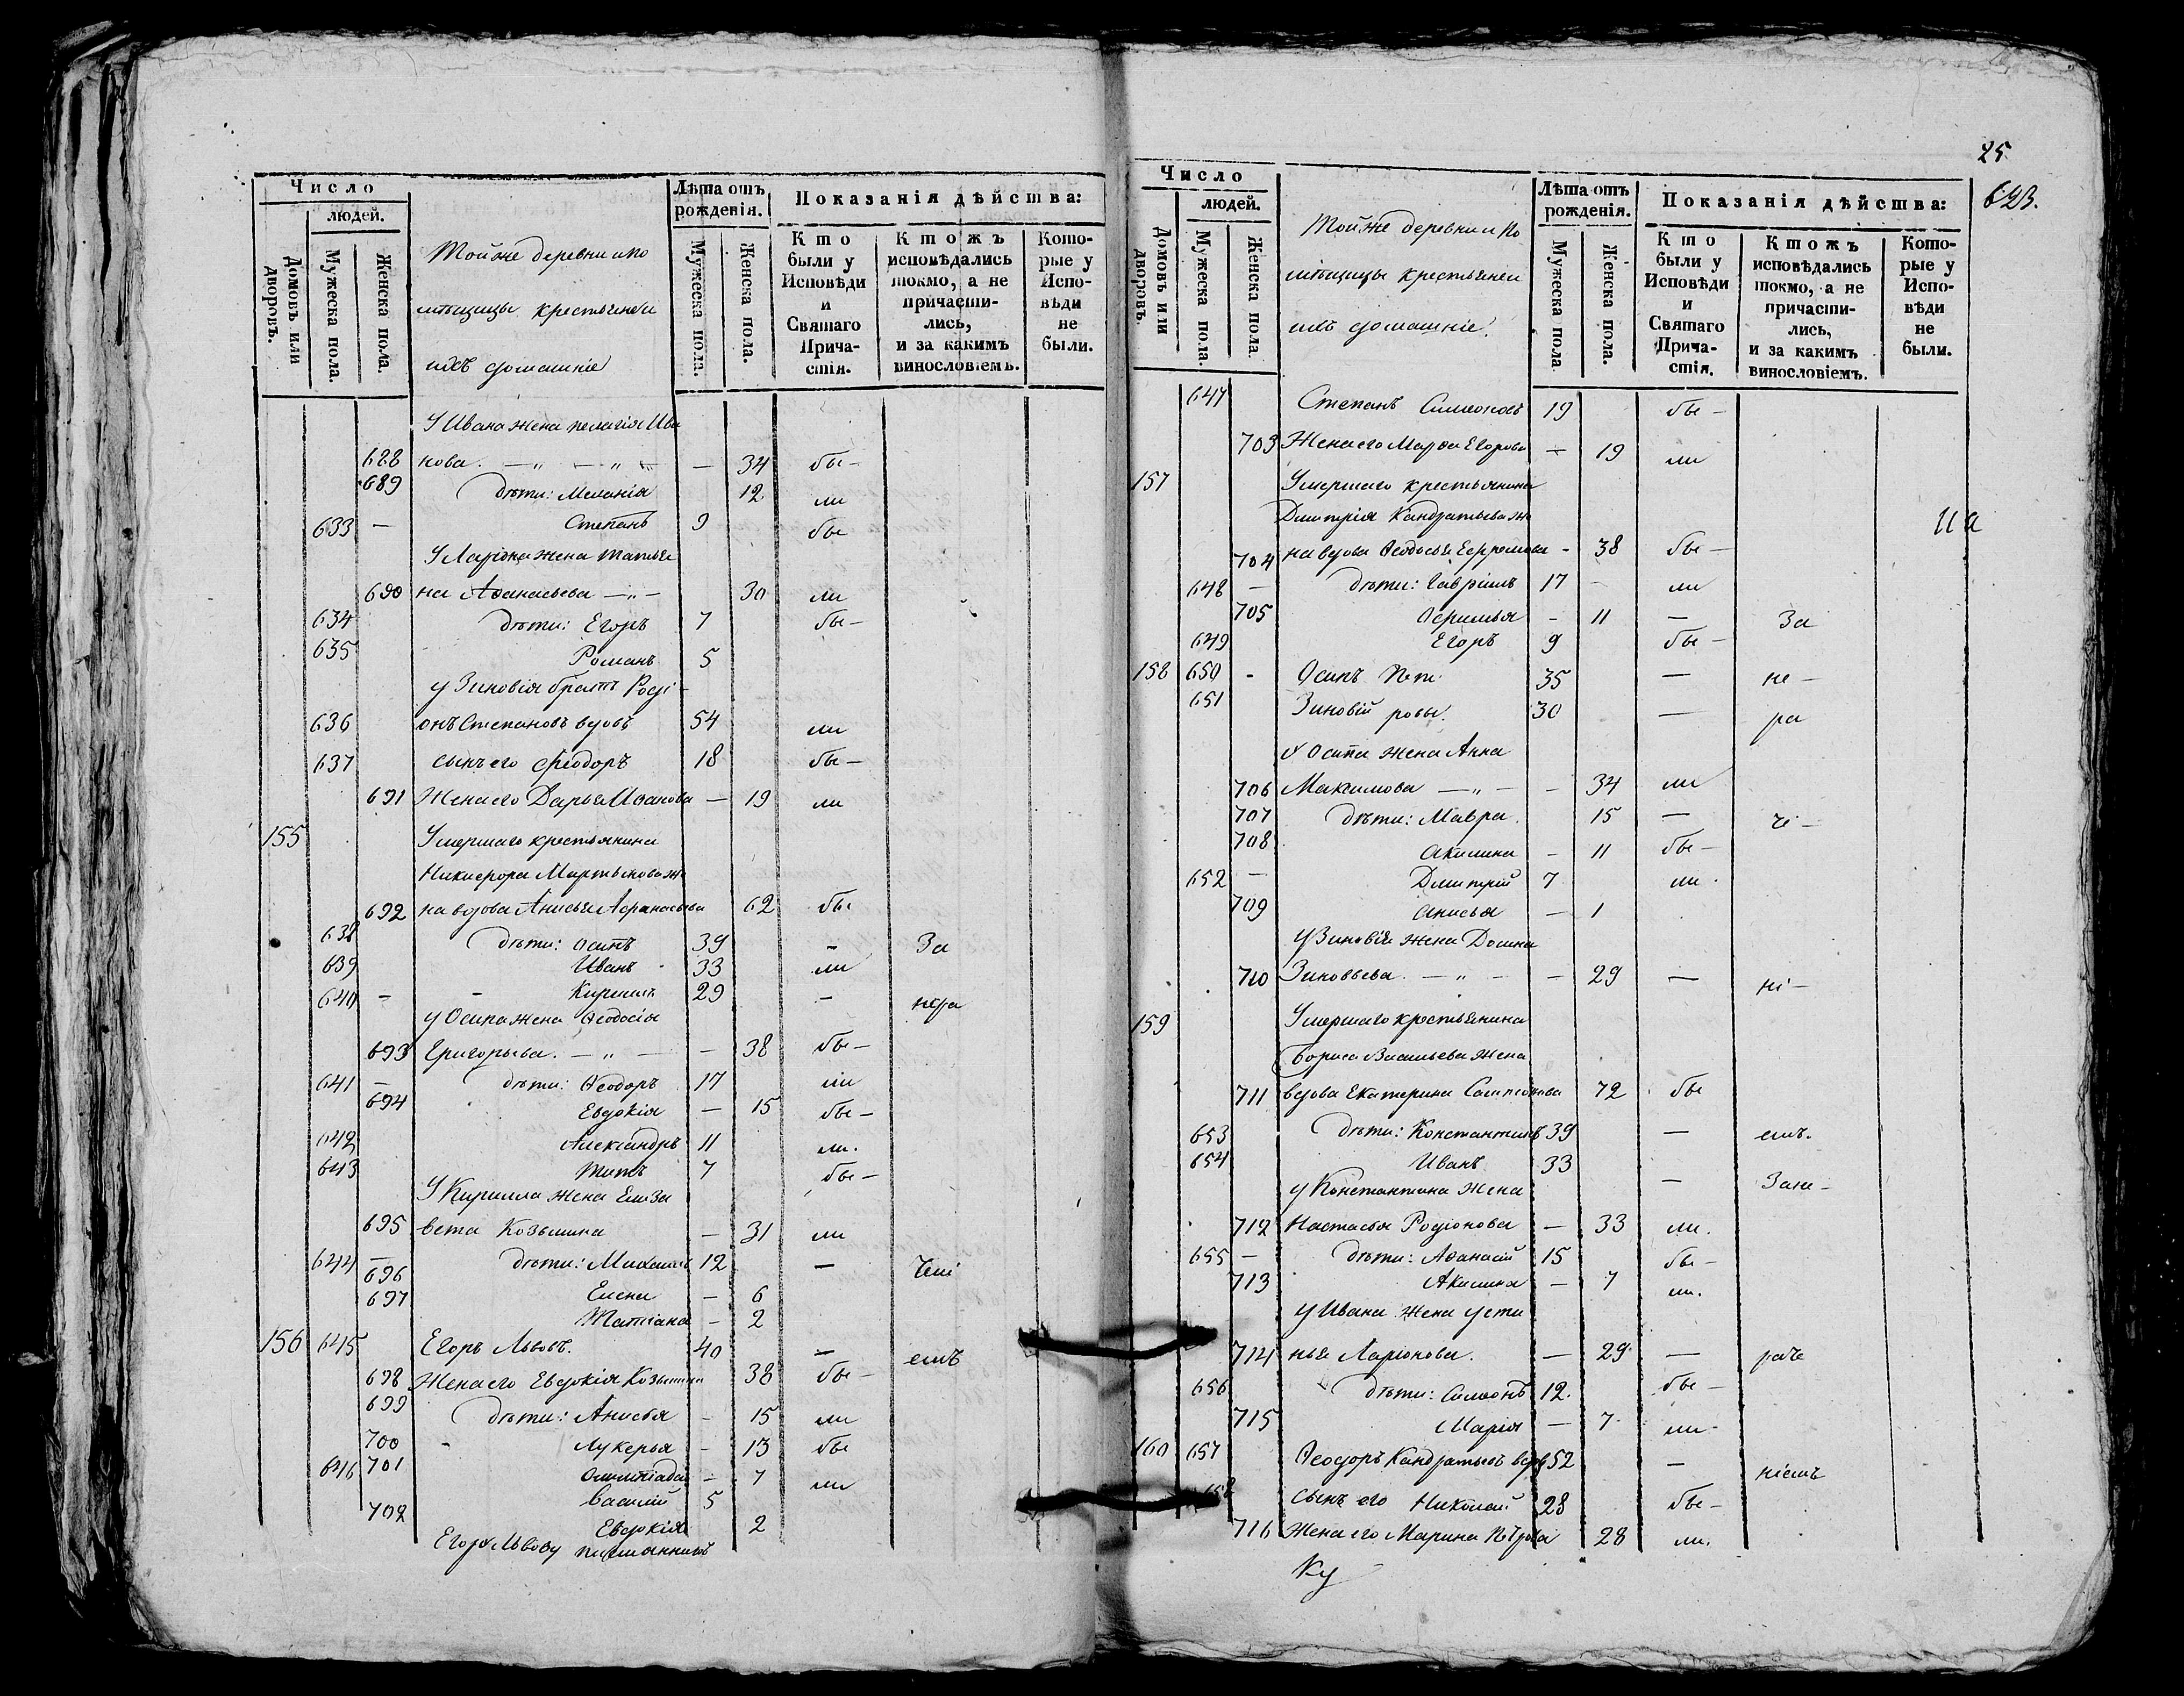 Число
людей.
Домовъ или дворовъ.
Мужеска пола.
Женска пола.
Тойже деревни и по
мѣщицы крестьяне и
ихъ домашніе
Лѣта отъ рожденія.
Мужеска пола.
Женска пола.
Показанія дѣйства:
Кто были у Исповѣди и Святаго Прича-стія.
Ктожъ исповѣдались токмо, а не причасти-лись, и за какимъ винословіемъ.
Кото-рые у Испо-вѣди не были.
У Ивана жена Пелагія Ива
688 нова. — „ — „ — — 34 бы-
689 дѣти: Меланія 12 ли
633 — Степанъ 9 бы
У Ларіона жена Татья
690 на Аѳанасьева — „ — 30 ли
634 дѣти: Егоръ 7 бы-
635 Романъ 5
у Зиновія братъ Роді-
636 онъ Степановъ вдовъ 54 ли
637 сынъ его Ѳеодоръ 18 бы-
691 Жена его Дарья Иванова — 19 ли
155 Умершаго крестьянина
Никифора Мартынова же
692 на вдова Анисья Афанасьева 62 бы
638 дѣти: Осипъ 39 - За
639 Иванъ 33 ли
640 - - Кирилъ 29 - нера
у Осипа жена Ѳеодосія
693 Григорьева. — „ — - 38 бы-
641 — дѣти: Ѳеодоръ 17 ли
694 Евдокія — 15 бы-
642 Александръ 11 ли.
643 Титъ 7 бы-
У Кирилла жена Елиза
695 вета Козьмина — 31 ли
644 — дѣти: Михаилъ 12 — чені
696 Елена - 6
697 Татіана - 2
156 645 Егоръ Львовъ. 40 — емъ
698 Жена его Евдокія Козьмина 38 бы-
699 дѣти: Анисья - 15 ли
700 Лукерья - 13 бы
701 Олимпіада - 7 ли
646 Василій 5
702 Евдокія 2
Егору Львову племянникъ
25
623.
Число
людей.
Домовъ или дворовъ.
Мужеска пола.
Женска пола.
Тойже деревни и по
мѣщицы крестьяне и
ихъ домашніе.
Лѣта отъ рожденія.
Мужеска пола
Женска пола.
Показанія дѣйства:
Кто были у Исповѣди и Святаго Прича-стія.
Ктожъ исповѣдались токмо, а не причасти-лись, и за какимъ винословіемъ.
Кото-рые у Испо-вѣди не были.
647 Степанъ Симеоновъ 19 бы-
703 Жена его Марѳа Егорова — 19 ли
157 Умершаго крестьянина
Дмитрія Кандратьева же
704 на вдова Ѳеодосья Ефремова - 38 бы-
648 — дѣти: Гавріилъ 17 - ли
705 - 11 — За
649 Егоръ 9 бы-
158 650 - Осипъ 35 — не-
651 Зиновій 30 — ра
У Осипа жена Анна
706 Максимова — „ — - 34 ли
707 дѣти: Мавра. 15 — че-
708 Акилина - 11 бы-
652 — Дмитрій 7 ли.
709 Анисья — 1
у Зиновія жена Домна
710 Зиновьева. — „ - — 29 — ні-
159 Умершаго крестьянина
Бориса Васильева жена
711 вдова Екатерина Сампсонова 72 бы
653 дѣти: Константинъ 39 — емъ.
654 Иванъ 33 — Зане-
у Константина жена
712 Настасья Родіонова — 33 ли.
655 — дѣти: Аѳанасій 15 бы-
713 Акилина — 7 ли.
у Ивана жена Усти
714 нья Ларіонова. — 29 — раче
656 дѣти: Симеонъ 12. бы-
715 Марія — 7 ли-
160 657 Ѳеодоръ Кандратьевъ вдовъ 52 — ніемъ
658 сынъ его Николай 28 бы-
716 Жена его Марина Петрова 28 ли.
Ку